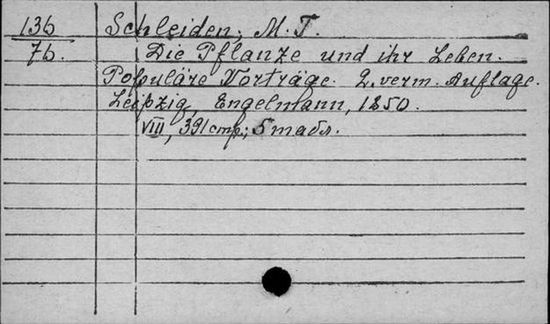 136 Schleiden, M. T.
7b. Die Pflanze und ihr Leben.
Populäre Vorträge. 2. verm. Auflage.
Leipzig, Engelmann, 1850.
VIII, 391 стр.; 5 табл.